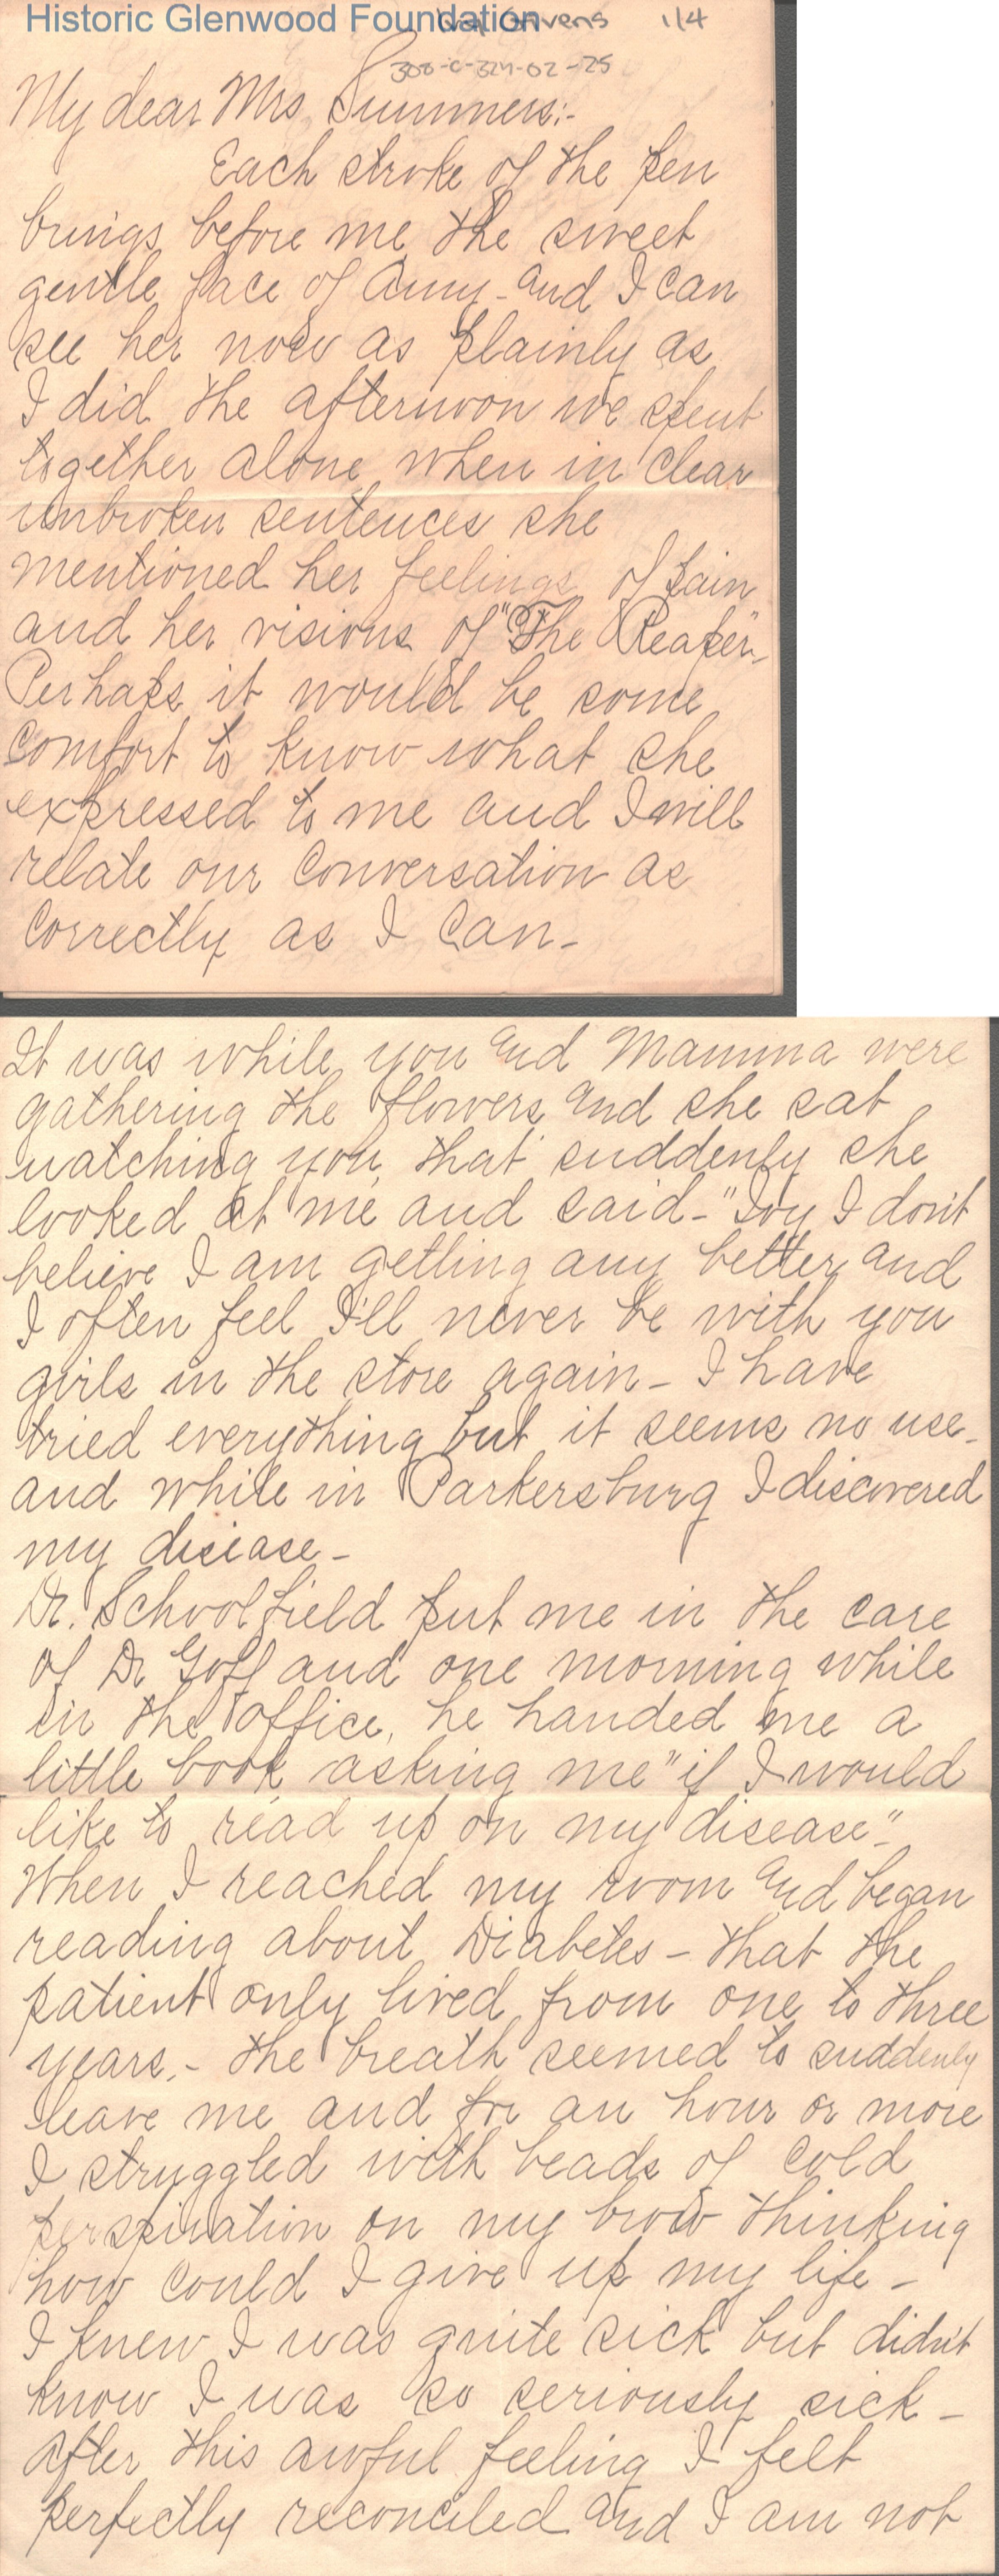 Historic Glenwood Foundation
Givens 1/4
308-C-324-02-25
My dear Mrs Summers:-
Each stroke of the pen
brings before me the sweet
gentle face of Amy - and I can
see her now as plainly as
I did the afternoon we spent
together alone when in clear
unbroken sentences she
mentioned her feelings of pain
and her visions of "The Reaper"-
Perhaps it would be some
comfort to know what she
expressed to me and I will
relate our conversation as
correctly as I can -
It was while you and Mamma were
gathering the flowers and she sat
watching you, that suddenly she
looked at me and said - "Ivy I don't
believe I am getting any better and
I often feel I'll never be with you
girls in the store again - I have
tried everything but it seems no use -
and while in Parkersburg I discovered
my disease -
Dr. Schoolfield put me in the care
of Dr Goff and one morning while
in the office, he handed me a
little book asking me "if I would
like to read up on my disease".
When I reached my room and began
reading about Diabetes - that the
patient only lived from one to three
years. - the breath seemed to suddenly
leave me and for an hour or more
I struggled with beads of cold
perspiration on my brow thinking
how could I give up my life -
I knew I was quite sick but didn't
know I was so seriously sick -
after this awful feeling I felt
perfectly reconciled and I am not